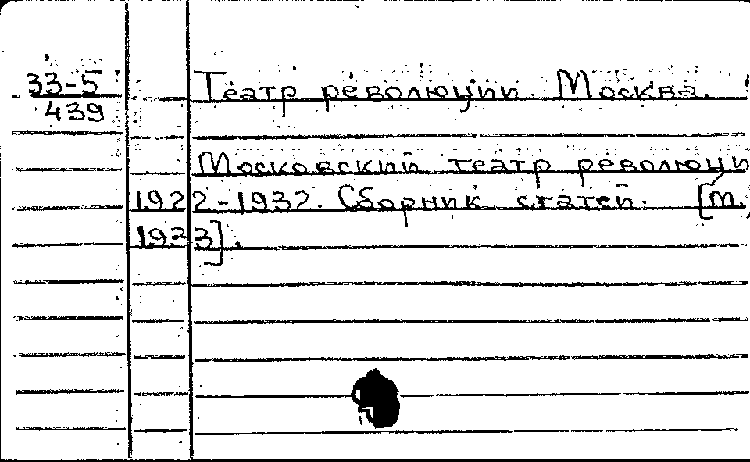 33-5
439
Театр революции. Москва.
Московский театр революци
1922-1932. Сборник статей. [М.,
1933].